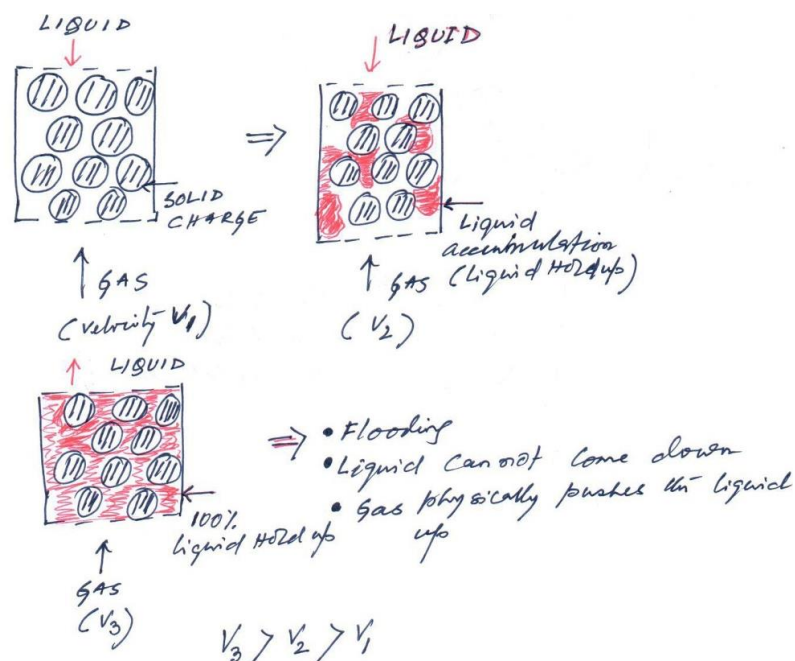 LIQUID
SOLID
CHARGE
GAS
(velocity V1)
LIQUID
Liquid
accumulation
(Liquid Holdup)
GAS
(V2)
LIQUID
100%
Liquid Holdup
GAS
(V3)
⇒ • Flooding
• Liquid cannot come down
• Gas physically pushes the liquid
up
V3 > V2 > V1